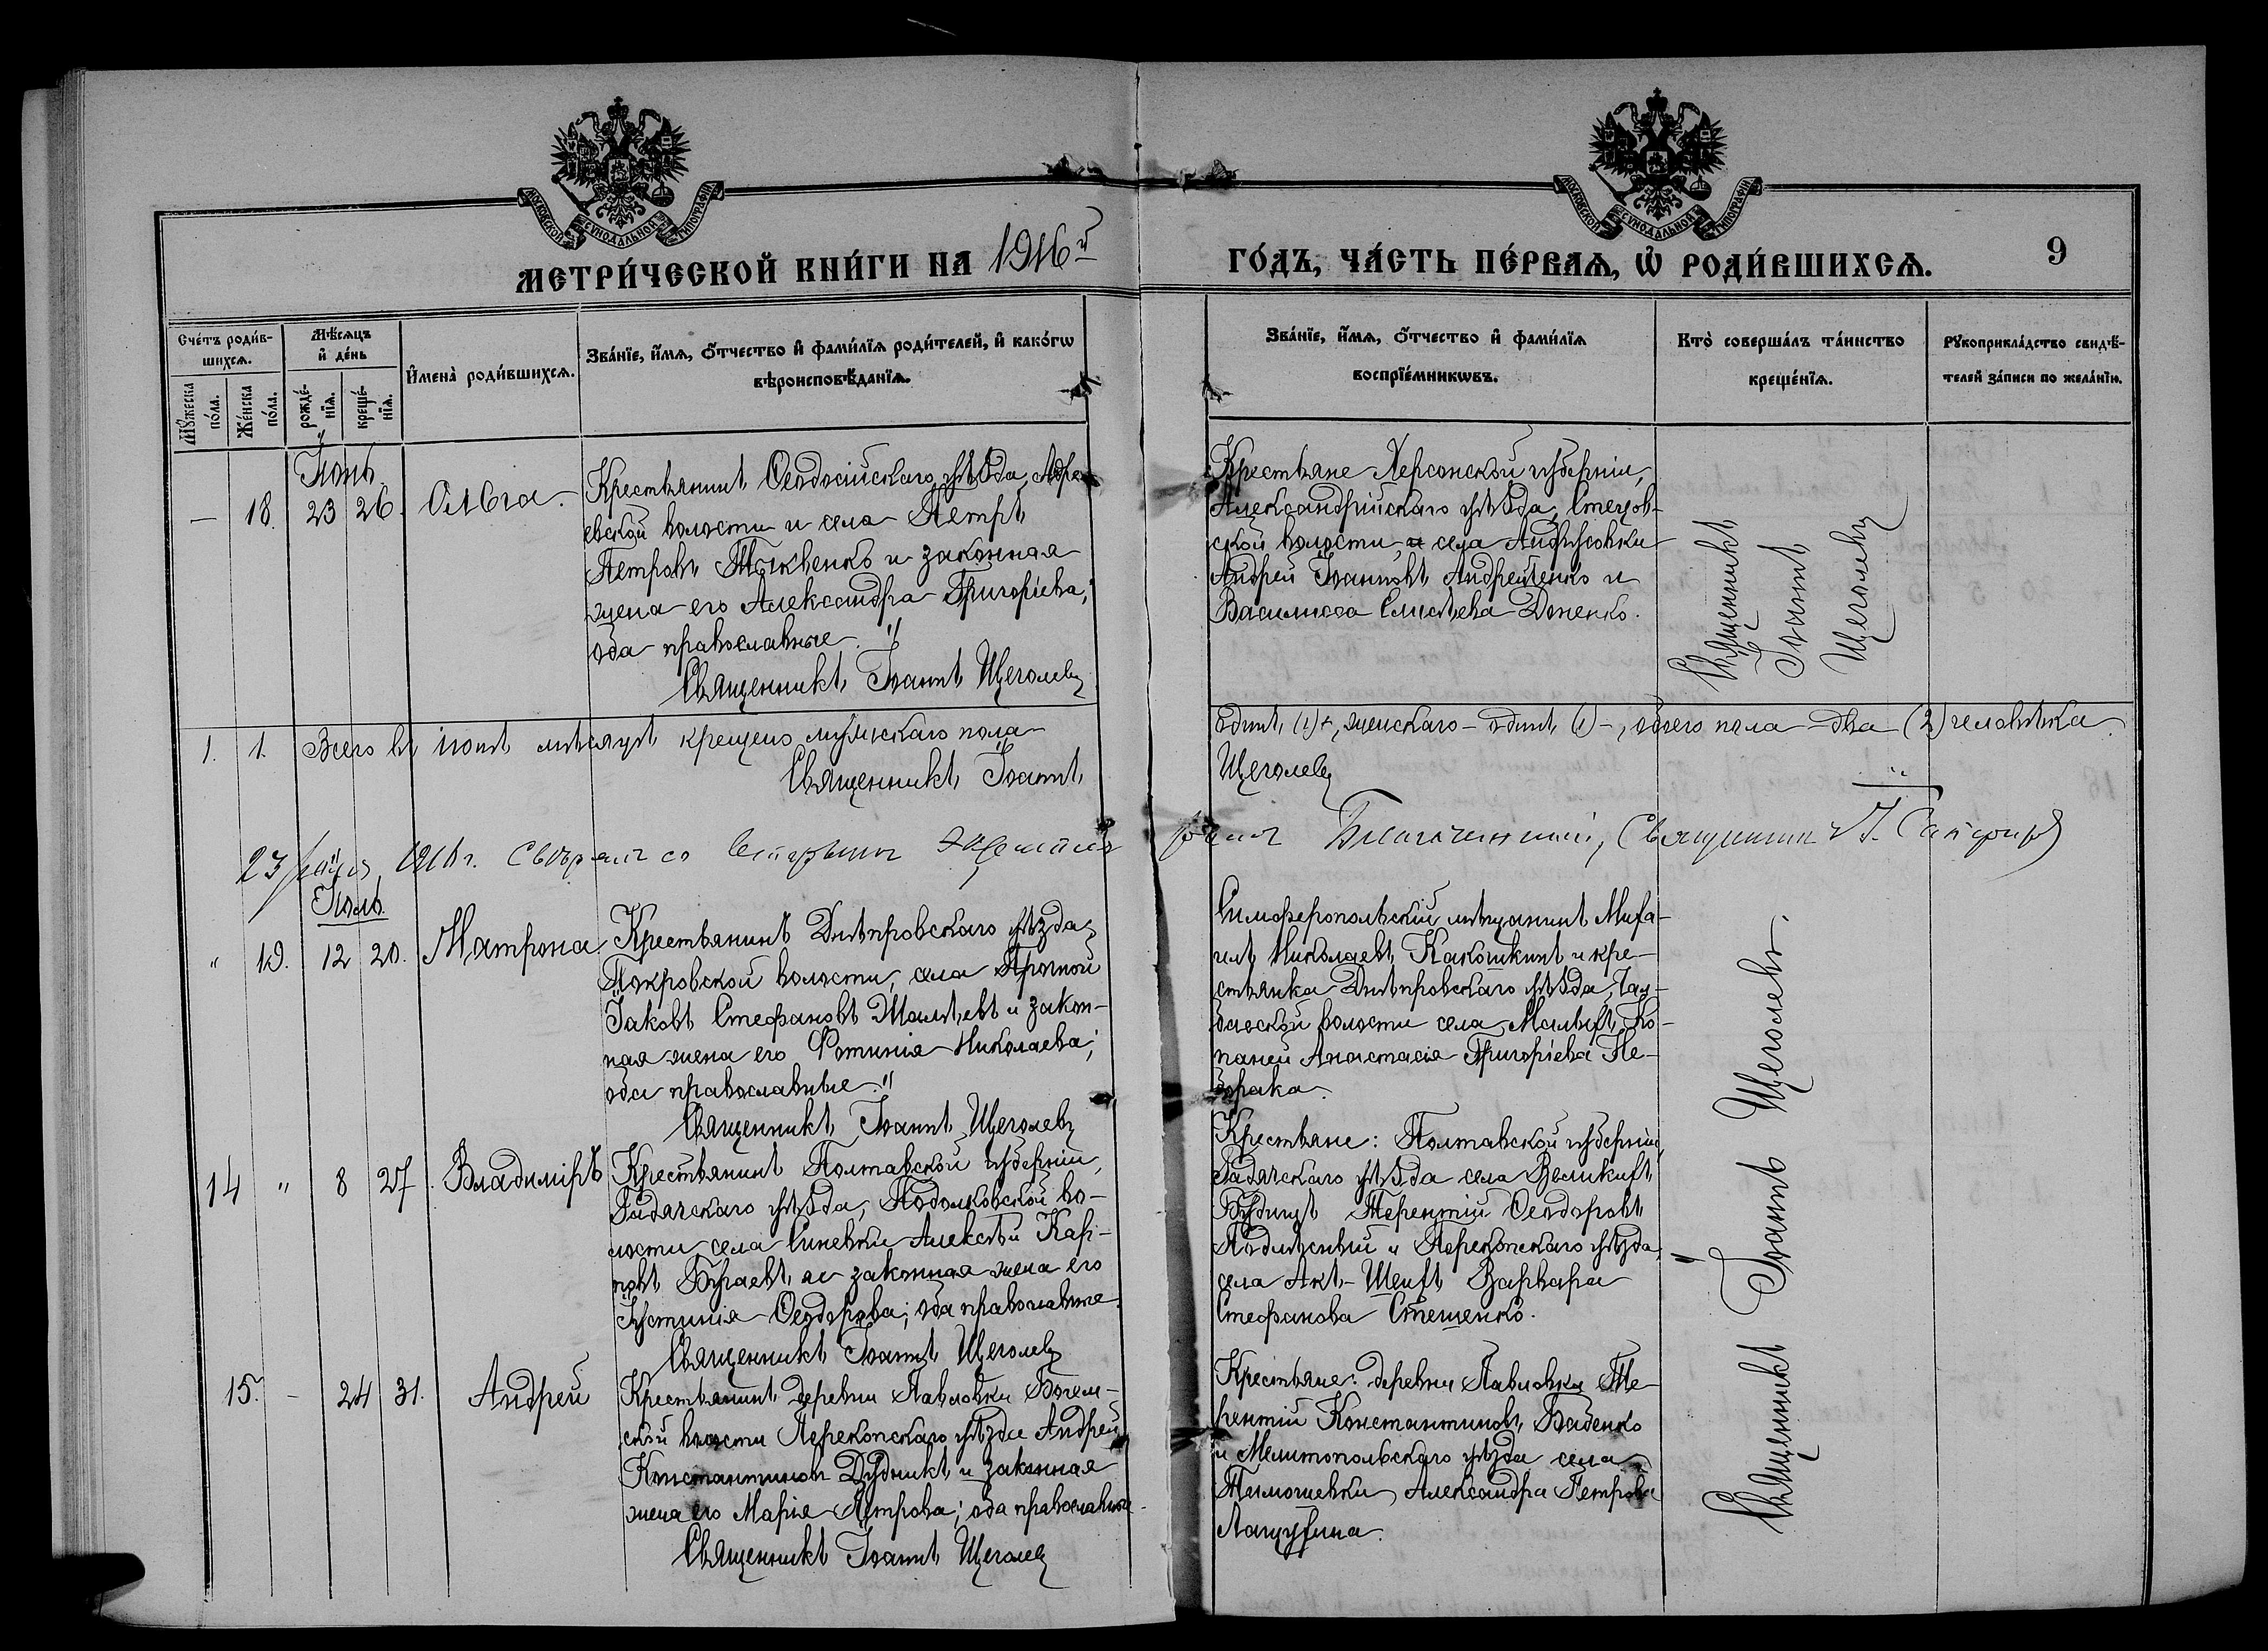 МОСКОВСКОЙ СѴНОДАЛЬНОЙ ТИПОГРАФІИ
МОСКОВСКОЙ СѴНОДАЛЬНОЙ ТИПОГРАФІИ
МЕТРИ́ЧЕСКОЙ КНИ́ГИ НА 1916й
ГО́ДЪ, ЧА́СТЬ ПЕ́РВАѦ, Ѡ҆ РОДИ́ВШИХСѦ.
9
Сче́тъ роди́в-
шихсѧ.
Мꙋ́жеска по́ла.
Же́нска по́ла.
Мѣ́сѧцъ
и҆ де́нь
рожде́-
нїѧ.
креще́-
нїѧ.
И҆мена̀ роди́вшихсѧ.
Зва́нїе, и҆́мѧ, ѻ҆́тчество и҆ фами́лїѧ роди́телей, и҆ како́гѡ
вѣроисповѣ́данїѧ.
Зва́нїе, и҆́мѧ, ѻ҆́тчество и҆ фами́лїѧ
воспрїе́мникѡвъ.
Кто̀ соверша́лъ та́инство
креще́нїѧ.
Рꙋкоприкла́дство свидѣ́-
телей за́писи по жела́нїю.
Іюнь
— 18. 23 26. Ольга.
Крестьянинъ Ѳеодосійскаго уѣзда, Андре-
евской волости и села Петръ
Петровъ и законная
жена его Александра Григоріева;
оба православные.
Священникъ Іоаннъ Щеголевъ
Крестьяне Херсонской губерніи,
Александрійскаго уѣзда,
ской волости, села
Андрей Іоанновъ Андрейченко и
Василисса Елисѣева Доненко.
Священникъ
Іоаннъ
Щеголевъ
1. 1. Всего въ іюнѣ мѣсяцѣ крещено мужскаго пола
одинъ (1), женскаго — одинъ (1) —, обоего пола — два (2) человѣка.
Священникъ Іоаннъ
Щеголевъ
23 1916 г. со Благочинный, Священникъ
Іюль
" 19. 12 20. Матрона
Крестьянинъ Днѣпровскаго уѣзда,
Покровской волости, села Прогной
Іаковъ Стефановъ и закон-
ная жена его Фотинія Николаева;
оба православные."
Священникъ Іоаннъ Щеголевъ
Симферопольскій мѣщанинъ Миха-
илъ Николаевъ Какошкинъ и кре-
стьянка Днѣпровскаго уѣзда, Чап-
линской волости села Малыхъ Ко-
паней Анастасія Григоріева Не-
Священникъ Іоаннъ Щеголевъ.
14 " 8 27. Владиміръ
Крестьянинъ Полтавской губерніи,
Гадячскаго уѣзда, во-
лости села Синевки Алексѣй Кар-
повъ Бураевъ и законная жена его
Іустинія Ѳеодорова; оба православные.
Священникъ Іоаннъ Щеголевъ
Крестьяне: Полтавской губерніи,
Гадячскаго уѣзда села Великихъ
Будищъ Терентій Ѳеодоровъ
Подлѣсный и Перекопскаго уѣзда,
села Акъ-Шеихъ Варвара
Стефанова Стешенко.
15. - 24 31. Андрей
Крестьянинъ деревни Павловки Богем-
ской волости Перекопскаго уѣзда Андрей
Константиновъ Дудникъ и законная
жена его Марія Петрова; оба православные
Священникъ Іоаннъ Щеголевъ
Крестьяне: деревни Павловки Те-
рентій Константиновъ Баденко
и Мелитопольскаго уѣзда села
Тимошевки Александра Петрова